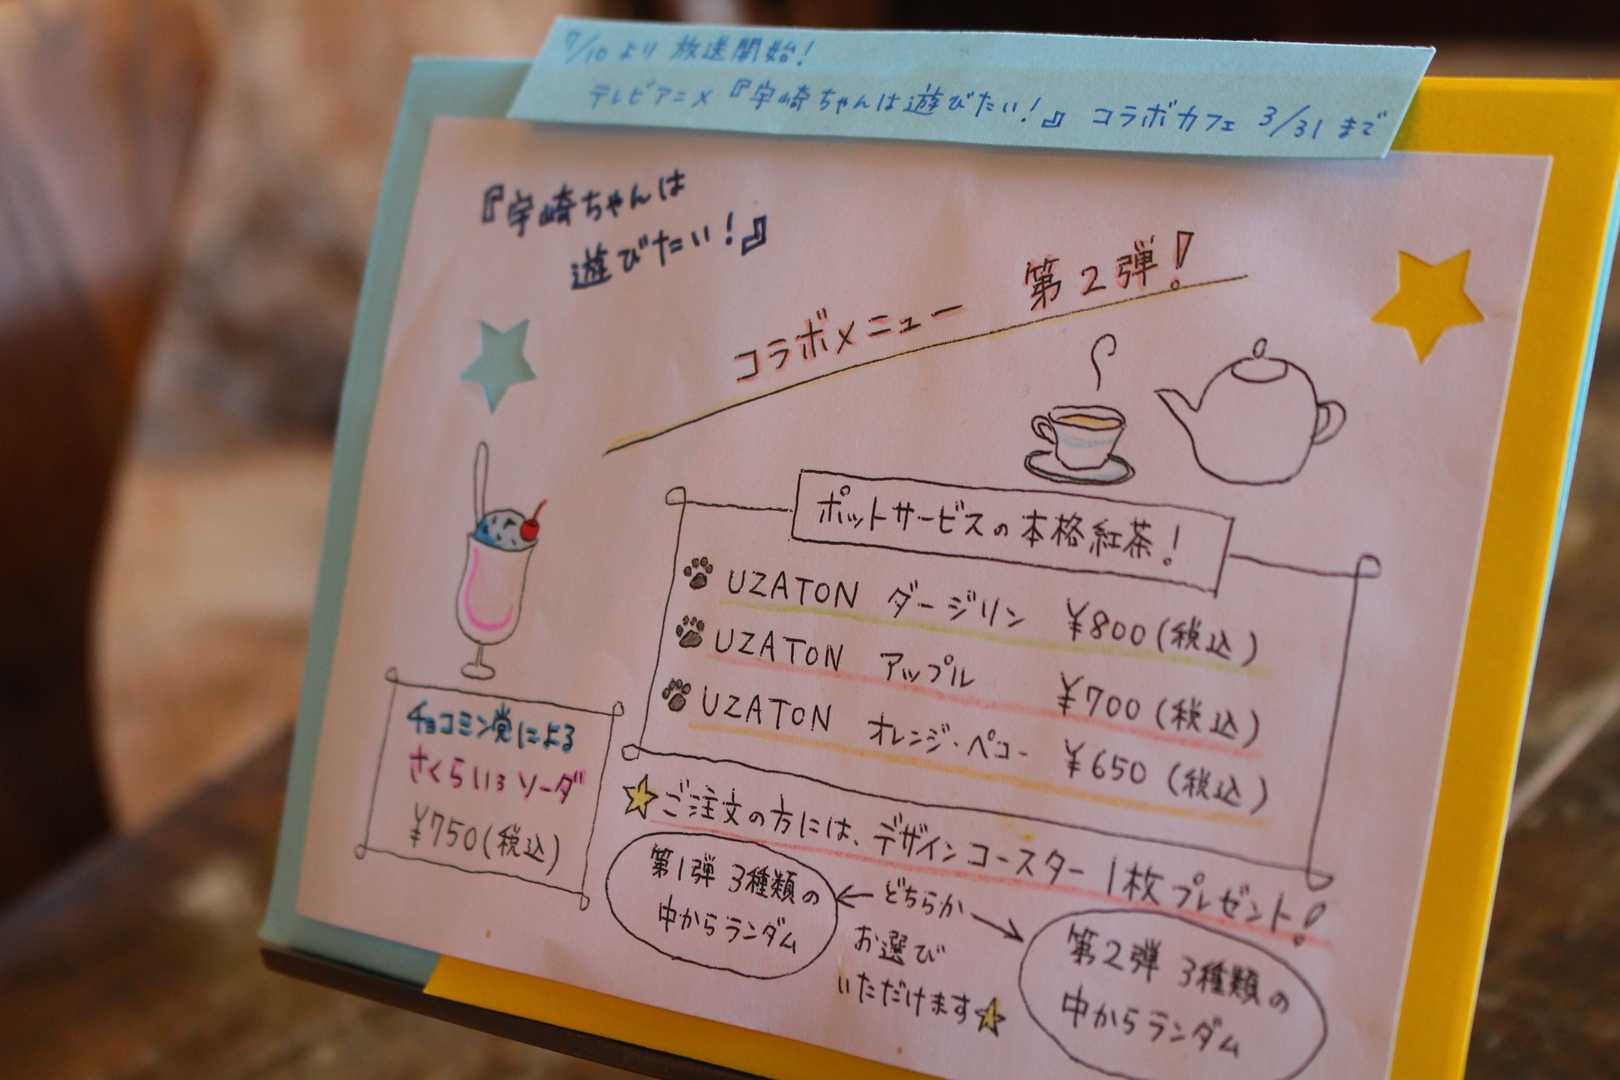 7/10より 放送開始!
テレビアニメ『宇崎ちゃんは遊びたい!』 コラボカフェ 3/31まで
『宇崎ちゃんは
遊びたい!』
コラボメニュー 第2弾!
ポットサービスの本格紅茶!
UZATON ダージリン ¥800(税込)
UZATON アップル ¥700(税込)
UZATON オレンジ・ペコー ¥650(税込)
チョコミン党による
さくらいろソーダ
¥750(税込)
☆ご注文の方には、デザインコースター1枚プレゼント!
第1弾 3種類の
中からランダム
←どちらか→
お選び
いただけます☆
第2弾 3種類の
中からランダム